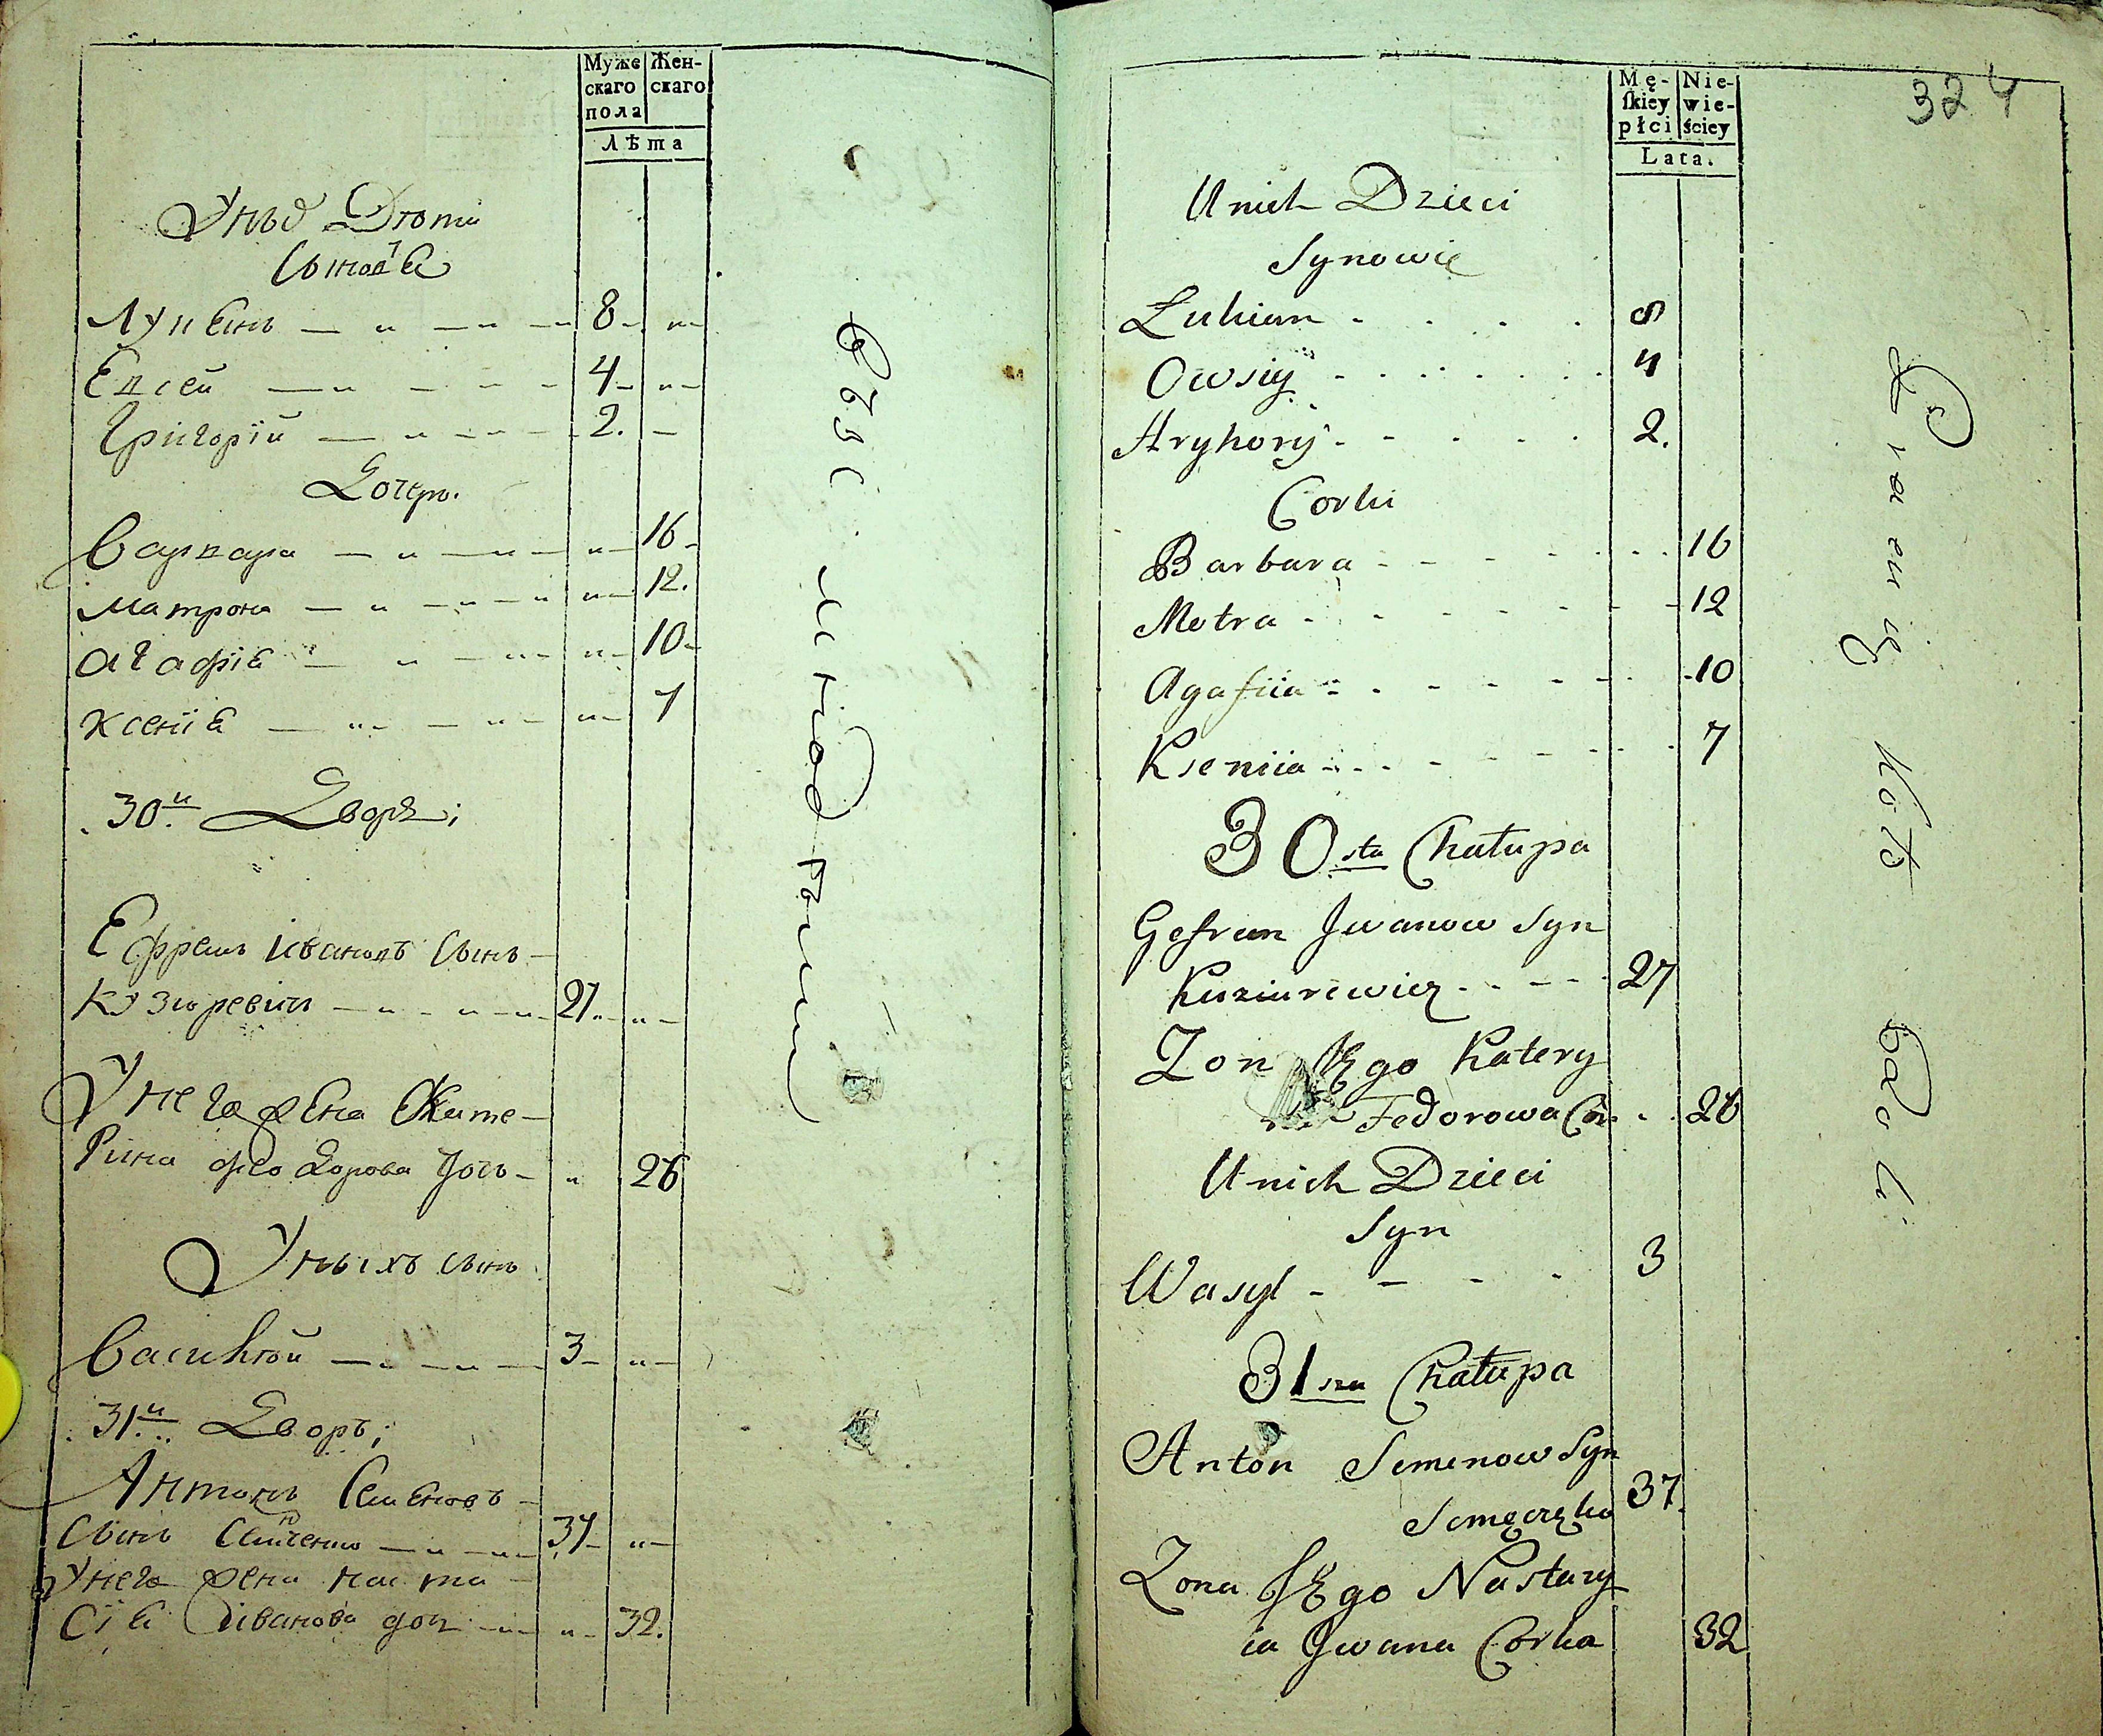 Муже
скаго
пола
Жен-
скаго
Лѣта
Унихъ Дѣти
Сыновя
Лукянъ 8
Евсей 4
Григорїй 2.
Дочери.
Варвара 16
Матрона 12.
Агафїя 10
Ксенїя 7
30й Дворъ;
Ефремъ Ивановъ Сынъ
Кузюревичъ 27
Унего жена Кате-
рина Феодорова дочь 26
Унихъ Сынъ
Василїй 3
31й Дворъ;
Антонъ Семеновъ
Сынъ 37
Унего жена Наста-
сїя Иванова доч 32.
324
Mę-
skiey
płci
Nie-
wie-
ściey
Lata.
U nich Dzieci
Synowie
Łukian 8
Owsiy 4
Hryhory 2.
Corki
Barbara 16
Motra 12
Agafiia 10
Kseniia 7
30sta Chałupa
Gefrem Jwanow Syn
Kuziurewicz 27
Zon JEgo Katery
Fedorowa Cor 26
U nich Dzieci
Syn
Wasyl 3
31sza Chałupa
Anton Semenow Syn
37.
Zona JEgo Nastazy
ia Jwana Corka 32